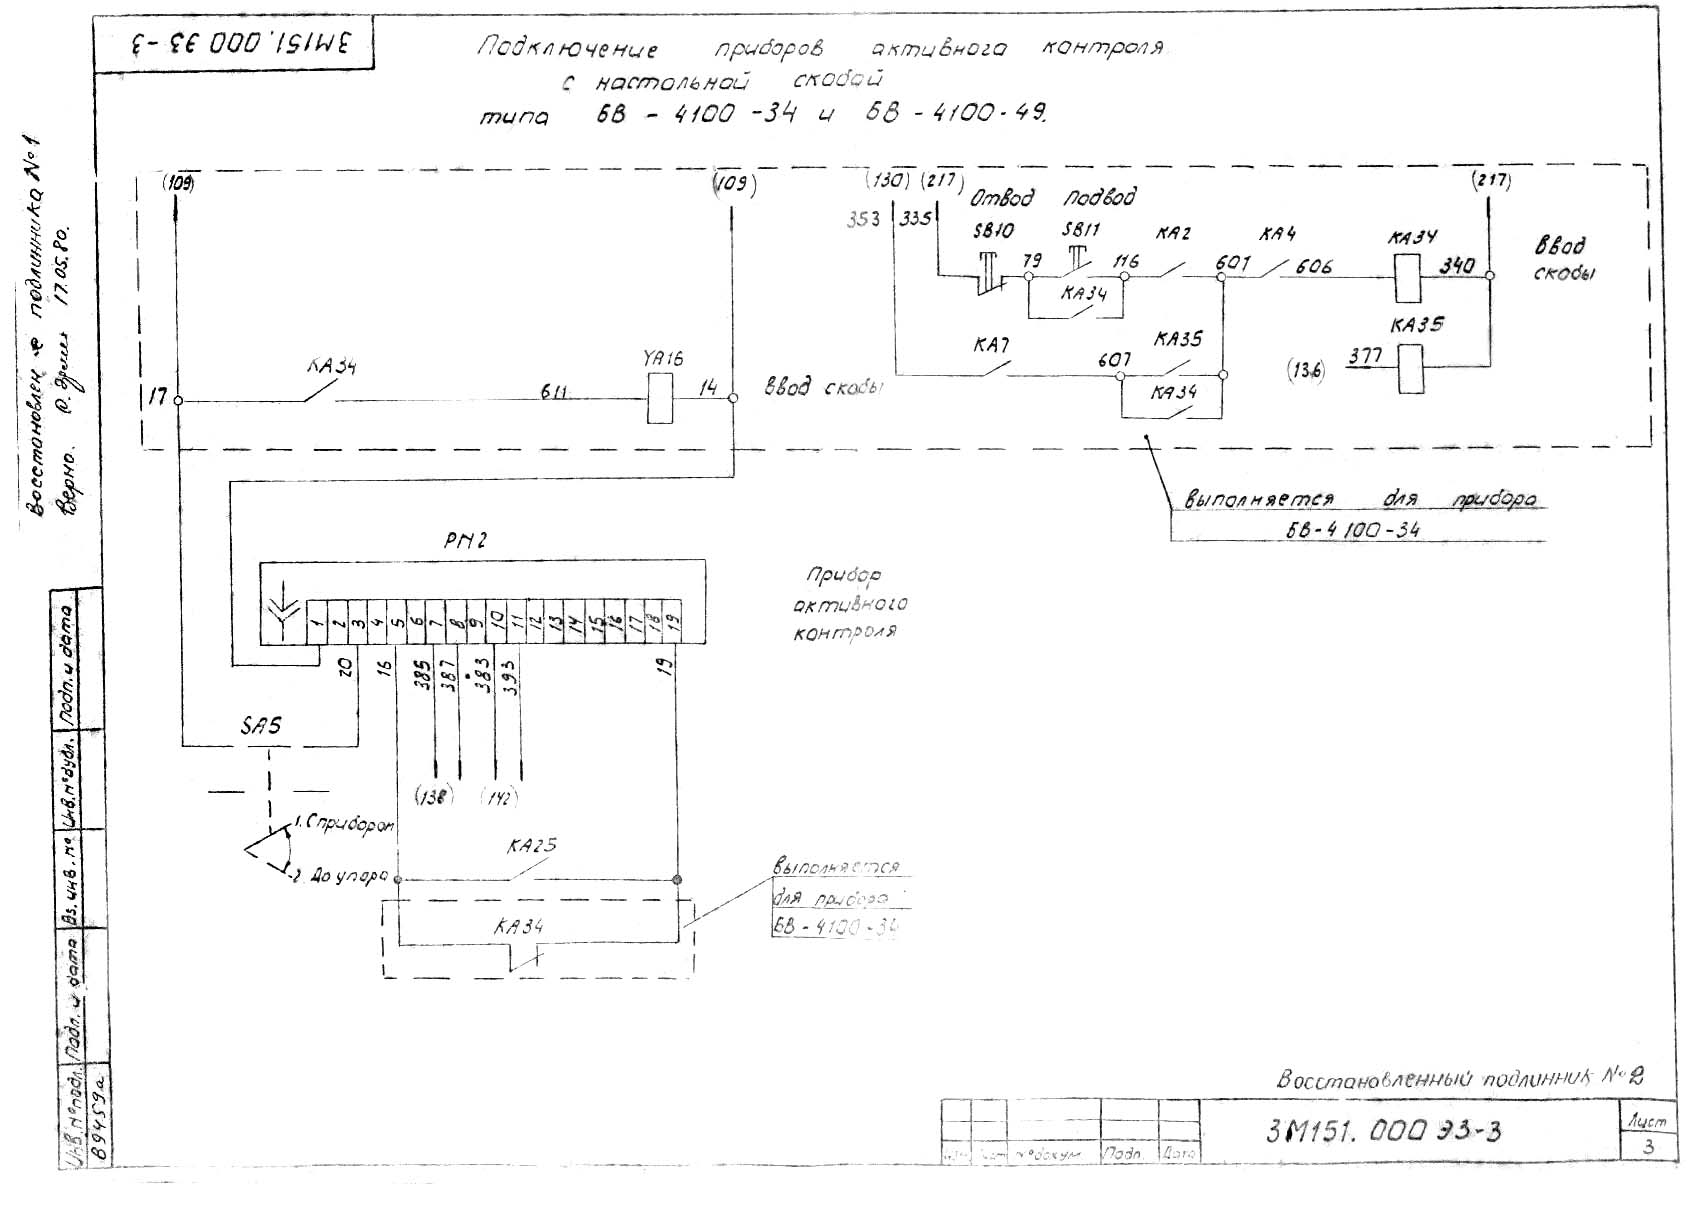 3М151.000 Э3-3
Подключение приборов активного контроля
с настольной скобой
типа БВ-4100-34 и БВ-4100-49.
Восстановлен с подлинника №1
Верно. 17.05.80.
(109) (109) (130) (217) (217)
353 335
Отвод Подвод
SB10 SB11 КА2 КА4 КА34
79 116 601 606 340
Ввод
скобы
КА34
КА7 607 КА35 КА35
(136) 377
КА34
17 КА34 611 YA16 14 Ввод скобы
выполняется для прибора
БВ-4100-34
РМ2
Прибор
активного
контроля
1 2 3 4 5 6 7 8 9 10 11 12 13 14 15 16 17 18 19
20 16 385 387 383 393 19
SA5
(138) (142)
1. С прибором
2. До упора
КА25
КА34
выполняется
для прибора
БВ-4100-34
Инв.№подл. Подп. и дата Вз.инв.№ Инв.№дубл. Подп. и дата
В9459а
Восстановленный подлинник №2
Изм Лист №докум. Подп. Дата
3М151.000 Э3-3
Лист
3